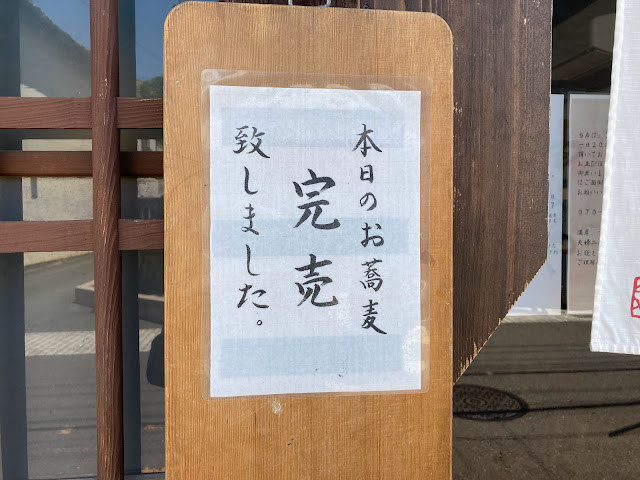 本日のお蕎麦
完売
致しました。